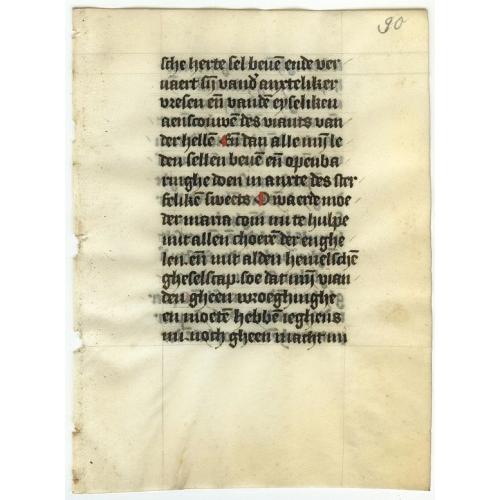 90
sche herte sel beuē ende ver
uaert sij vand' anxteliker
vresen eñ vandē eyseliken
aenscouwē des viants van
der hellē En dan alle mijn le
den sellen beuē eñ openba
ringhe doen in anxte des ster
felikē sweets O waerde moe
der maria com mi te hulpe
mit allen choerē der enghe
len. eñ mit alden hemelschē
gheselscap. soe dat mijn vian
den gheen wroeghinghe
en moetē hebbē ieghens
mi. noch gheen macht mi